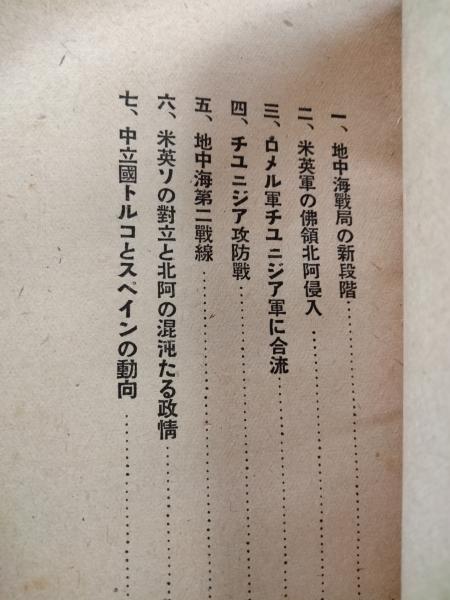 一、地中海戰局の新段階……………………
二、米英軍の佛領北阿侵入……………………
三、ロメル軍チユニジア軍に合流……………………
四、チユニジア攻防戰……………………
五、地中海第二戰線……………………
六、米英ソの對立と北阿の混沌たる政情……………………
七、中立國トルコとスペインの動向……………………